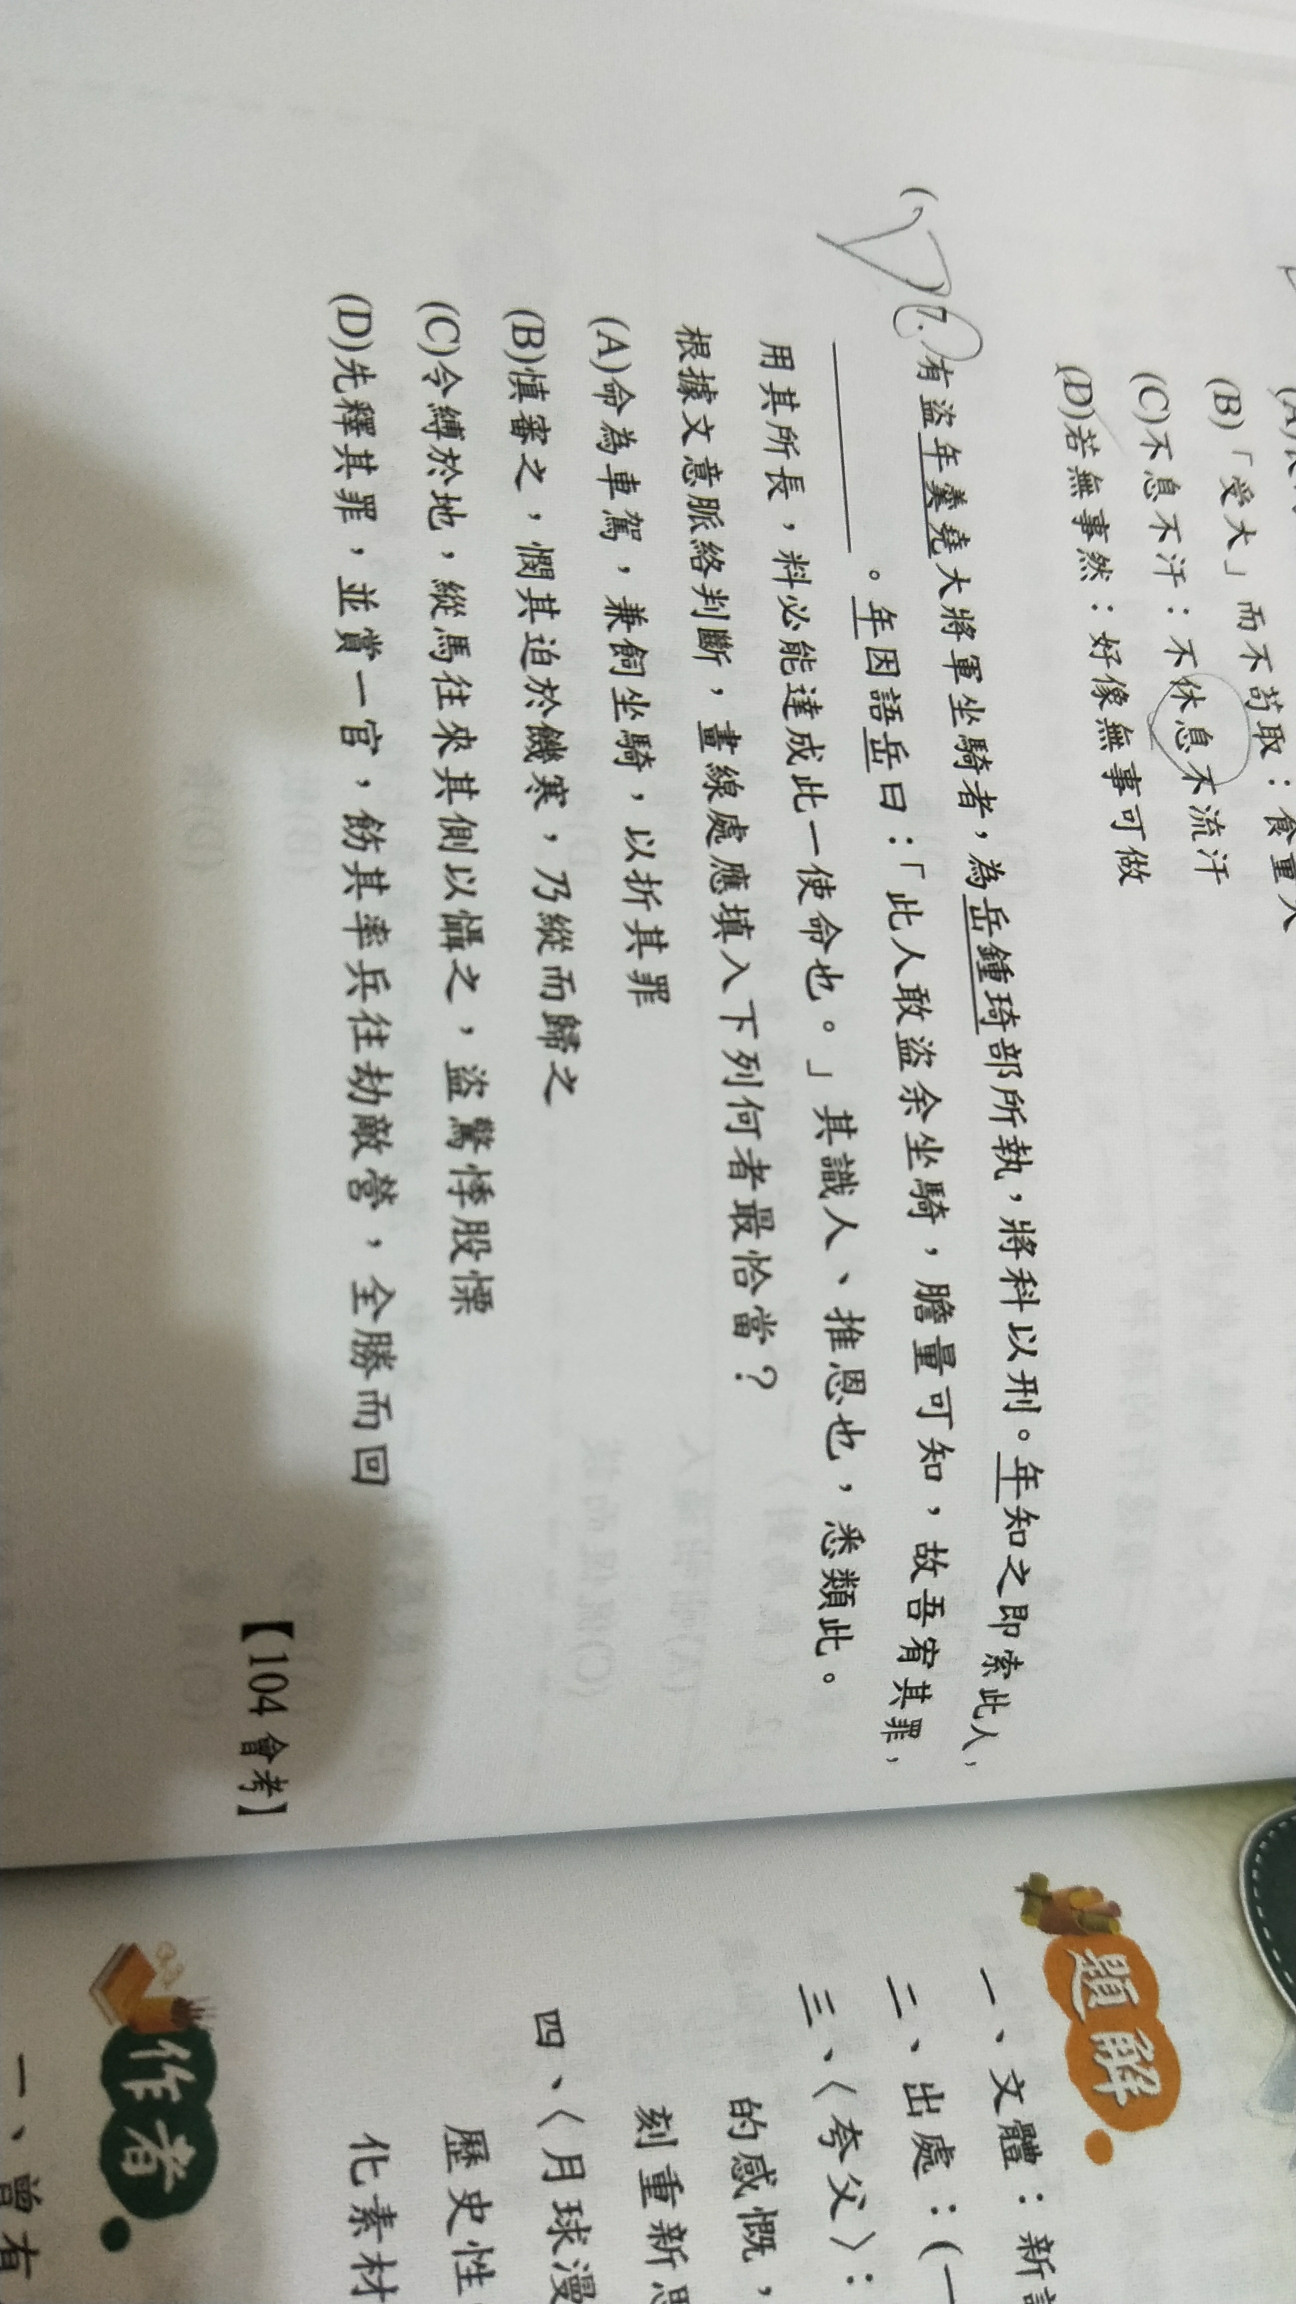 (B)「受大」而不苟取：食量大
(C)不息不汗：不休息不流汗
(D)若無事然：好像無事可做
7.有盜年羹堯大將軍坐騎者，為岳鍾琦部所執，將科以刑。年知之即索此人，
。年因語岳曰：「此人敢盜余坐騎，膽量可知，故吾宥其罪，
用其所長，料必能達成此一使命也。」其識人、推恩也，悉類此。
根據文意脈絡判斷，畫線處應填入下列何者最恰當？
(A)命為車駕，兼飼坐騎，以折其罪
(B)慎審之，憫其迫於饑寒，乃縱而歸之
(C)令縛於地，縱馬往來其側以懾之，盜驚悸股慄
(D)先釋其罪，並賞一官，飭其率兵往劫敵營，全勝而回
【104 會考】
題解
一、文體：新
二、出處：(一
三、〈夸父〉：
的感慨，
刻重新思
四、〈月球漫
歷史性
化素材
作者
一、曾有